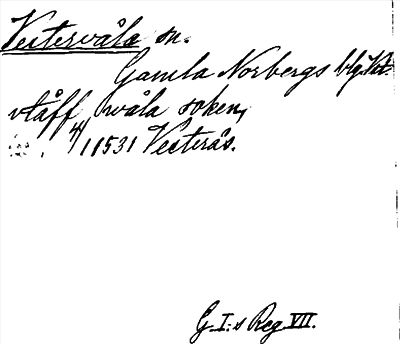 Vestervåla sn.
Gamla Norbergs blg. Vst.
vtåff wåla soken,
4/1 1531 Vesterås.
G. I:s Reg VII.